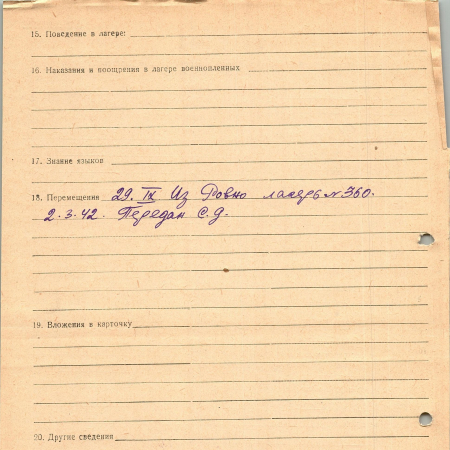 15. Поведение в лагере:
16. Наказания и поощрения в лагере военнопленных
17. Знание языков
18. Перемещения 29. IX Из Ровно лагерь № 360.
2.3.42. Передан С.Д.
19. Вложения в карточку
20. Другие сведения